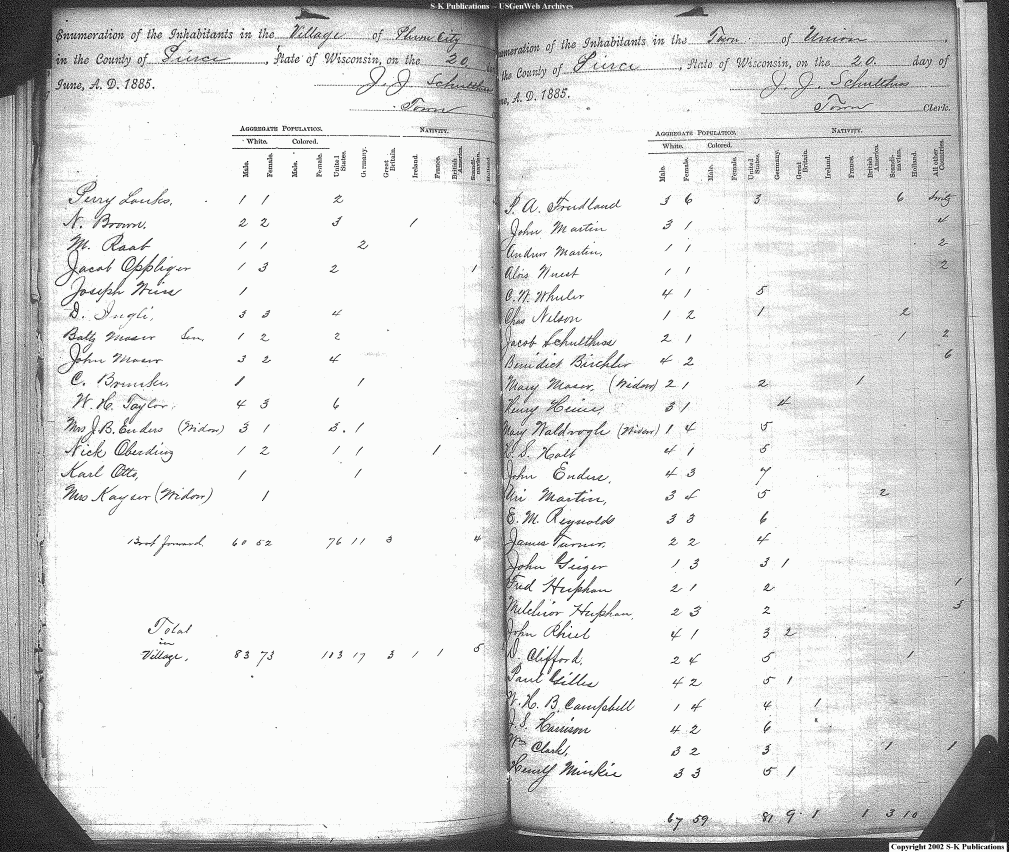 S-K Publications -- USGenWeb Archives
Enumeration of the Inhabitants in the Village of Plum City
in the County of Pierce, State of Wisconsin, on the 20
June, A. D. 1885.
J. J. Schulthiss
Town
AGGREGATE POPULATION. NATIVITY.
White. Colored.
Male. Female. Male. Female. United States. Germany. Great Britain. Ireland. France. British America. Scandinavian.
Perry Louks, 1 1 2
N. Brown, 2 2 3 1
M. Raab 1 1 2
Jacob Oppliger 1 3 2 1
Joseph Weiss 1
D. Ingli, 3 3 4
Baltz Moser Sen, 1 2 2
John Moser 3 2 4
C. 1 1
W. H. Taylor, 4 3 6
Mrs J. B. Enders (Widow) 3 1 3. 1
Nick Oberding 1 2 1 1 1
Karl Otto, 1 1
Mrs Kayser (Widow) 1
Brot forward. 60 52 76 11 3 4
Total
in
Village, 83 73 113 17 3 1 1 5
Enumeration of the Inhabitants in the Town of Union
the County of Pierce, State of Wisconsin, on the 20. day of
June, A. D. 1885.
J. J. Schulthiss
Town Clerk.
AGGREGATE POPULATION. NATIVITY.
White. Colored.
Male. Female. Male. Female. United States. Germany. Great Britain. Ireland. France. British America. Scandinavian. Holland. All other Countries.
A. Fridland 3 6 3 6
John Martin 3 1 4
Andrew Martin, 1 1 2
Alois Wuest 1 1 2
C. W. Wheeler 4 1 5
Chas Nelson 1 2 1 2
Jacob Schulthiss 2 1 1 2
Benidict Birchler 4 2 6
Mary Moser, (Widow) 2 1 2 1
Henry Heins, 3 1 4
Mary Waldrogle (Widow) 1 4 5
S. Holt 4 1 5
John Enders, 4 3 7
Martin, 3 4 5 2
E. M. Reynolds 3 3 6
James Turner, 2 2 4
John Geiger 1 3 3 1
Fred Huphan 2 1 2 1
Melchior Huphan, 2 3 2 3
John Rhiel 4 1 3 2
D. Clifford, 2 4 5 1
Paul Gilles 4 2 5 1
W. H. B. Campbell 1 4 4 1
J. S. Harrison 4 2 6
Wm Clark, 3 2 3 1 1
Henry Minkie 3 3 5 1
67 59 81 9 1 1 3 10
Copyright 2002 S-K Publications